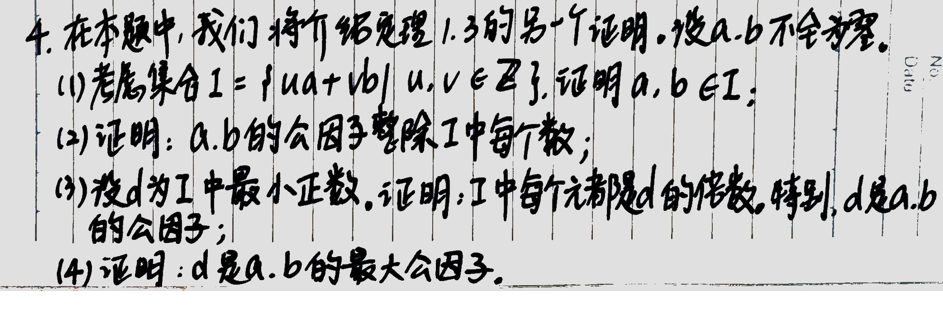 4. 在本题中,我们将介绍定理1.3的另一个证明。设a.b不全为零。
(1)考虑集合I={ua+vb| u,v∈Z}.证明a,b∈I;
(2)证明:a.b的公因子整除I中每个数;
(3)设d为I中最小正数。证明:I中每个元都是d的倍数。特别,d是a.b
的公因子;
(4)证明:d是a.b的最大公因子。
No
Date